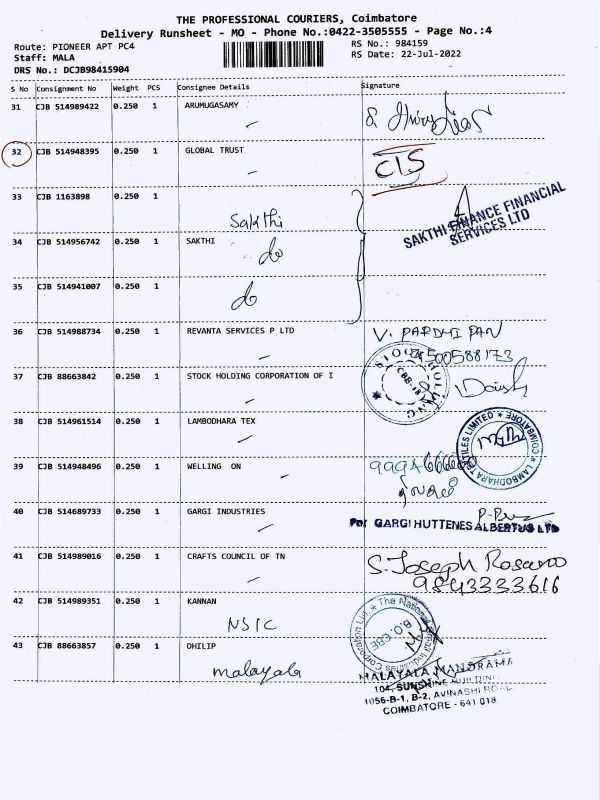 THE PROFESSIONAL COURIERS, Coimbatore
Delivery Runsheet - MO - Phone No.:0422-3505555 - Page No.:4
Route: PIONEER APT PC4 RS No.: 984159
Staff: MALA RS Date: 22-Jul-2022
DRS No.: DCJB98415904
S No Consignment No Weight PCS Consignee Details Signature
31 CJB 514989422 0.250 1 ARUMUGASAMY
32 CJB 514948395 0.250 1 GLOBAL TRUST CIS
33 CJB 1163898 0.250 1 Sakthi
SAKTHI FINANCE FINANCIAL
SERVICES LTD
34 CJB 514956742 0.250 1 SAKTHI
do
35 CJB 514941007 0.250 1
do
36 CJB 514988734 0.250 1 REVANTA SERVICES P LTD V. PARDHI PAN
37 CJB 88663842 0.250 1 STOCK HOLDING CORPORATION OF I
38 CJB 514961514 0.250 1 LAMBODHARA TEX
LAMBODHARA TEXTILES LIMITED ★ COIMBATORE ★
39 CJB 514948496 0.250 1 WELLING ON
40 CJB 514689733 0.250 1 GARGI INDUSTRIES
For GARGI HUTTENES ALBERTUS LTD
41 CJB 514989016 0.250 1 CRAFTS COUNCIL OF TN S. Joseph Rosario
9843333616
42 CJB 514989351 0.250 1 KANNAN
NSIC
The National Small Industries Corporation Ltd.
43 CJB 88663857 0.250 1 DHILIP
malayala
MALAYALA MANORAMA
104, SUNSHINE BUILDING
1056-B-1, B-2, AVINASHI ROAD
COIMBATORE - 641 018